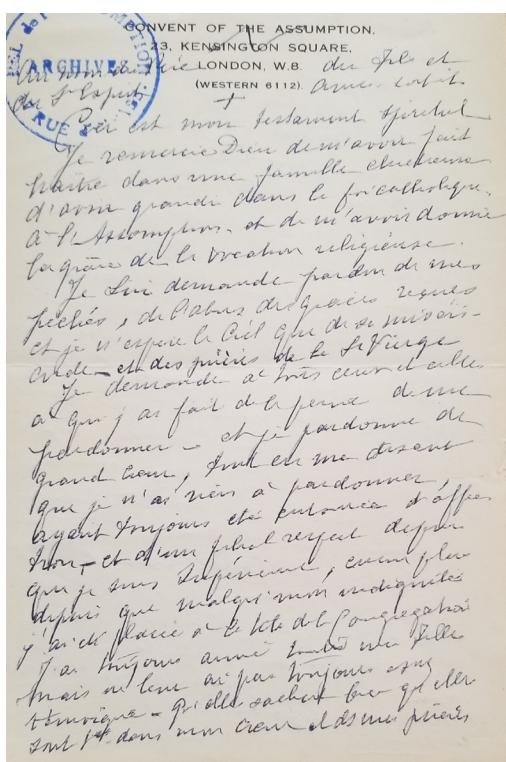 CONVENT OF THE ASSUMPTION,
23, KENSINGTON SQUARE,
LONDON, W.8.
(WESTERN 6112).
ARCHIVES
RUE
Au nom du Père du Fils et
du St Esprit Ainsi soit-il
+
Ceci est mon testament spirituel
Je remercie Dieu de m'avoir fait
naître dans une famille chrétienne
d'avoir grandi dans la foi catholique,
à l'Assomption - et de m'avoir donné
la grâce de la vocation religieuse.
Je Lui demande pardon de mes
péchés, de l'abus des grâces reçues
et je n'espère le Ciel que de sa miséri-
corde - et des prières de la Ste Vierge
Je demande à tous ceux et celles
à qui j'ai fait de la peine de me
pardonner - et je pardonne de
grand cœur, tout en me disant
que je n'ai rien à pardonner,
ayant toujours été entourée d'affec
tion - et d'un filial respect depuis
que je suis Supérieure, encore plus
depuis que malgré mon indignité
j'ai été placée à la tête de la Congrégation
J'ai toujours aimé mes filles
mais ne leur ai pas toujours
témoigné - Qu'elles sachent bien qu'elles
sont dans mon cœur et ds mes prières